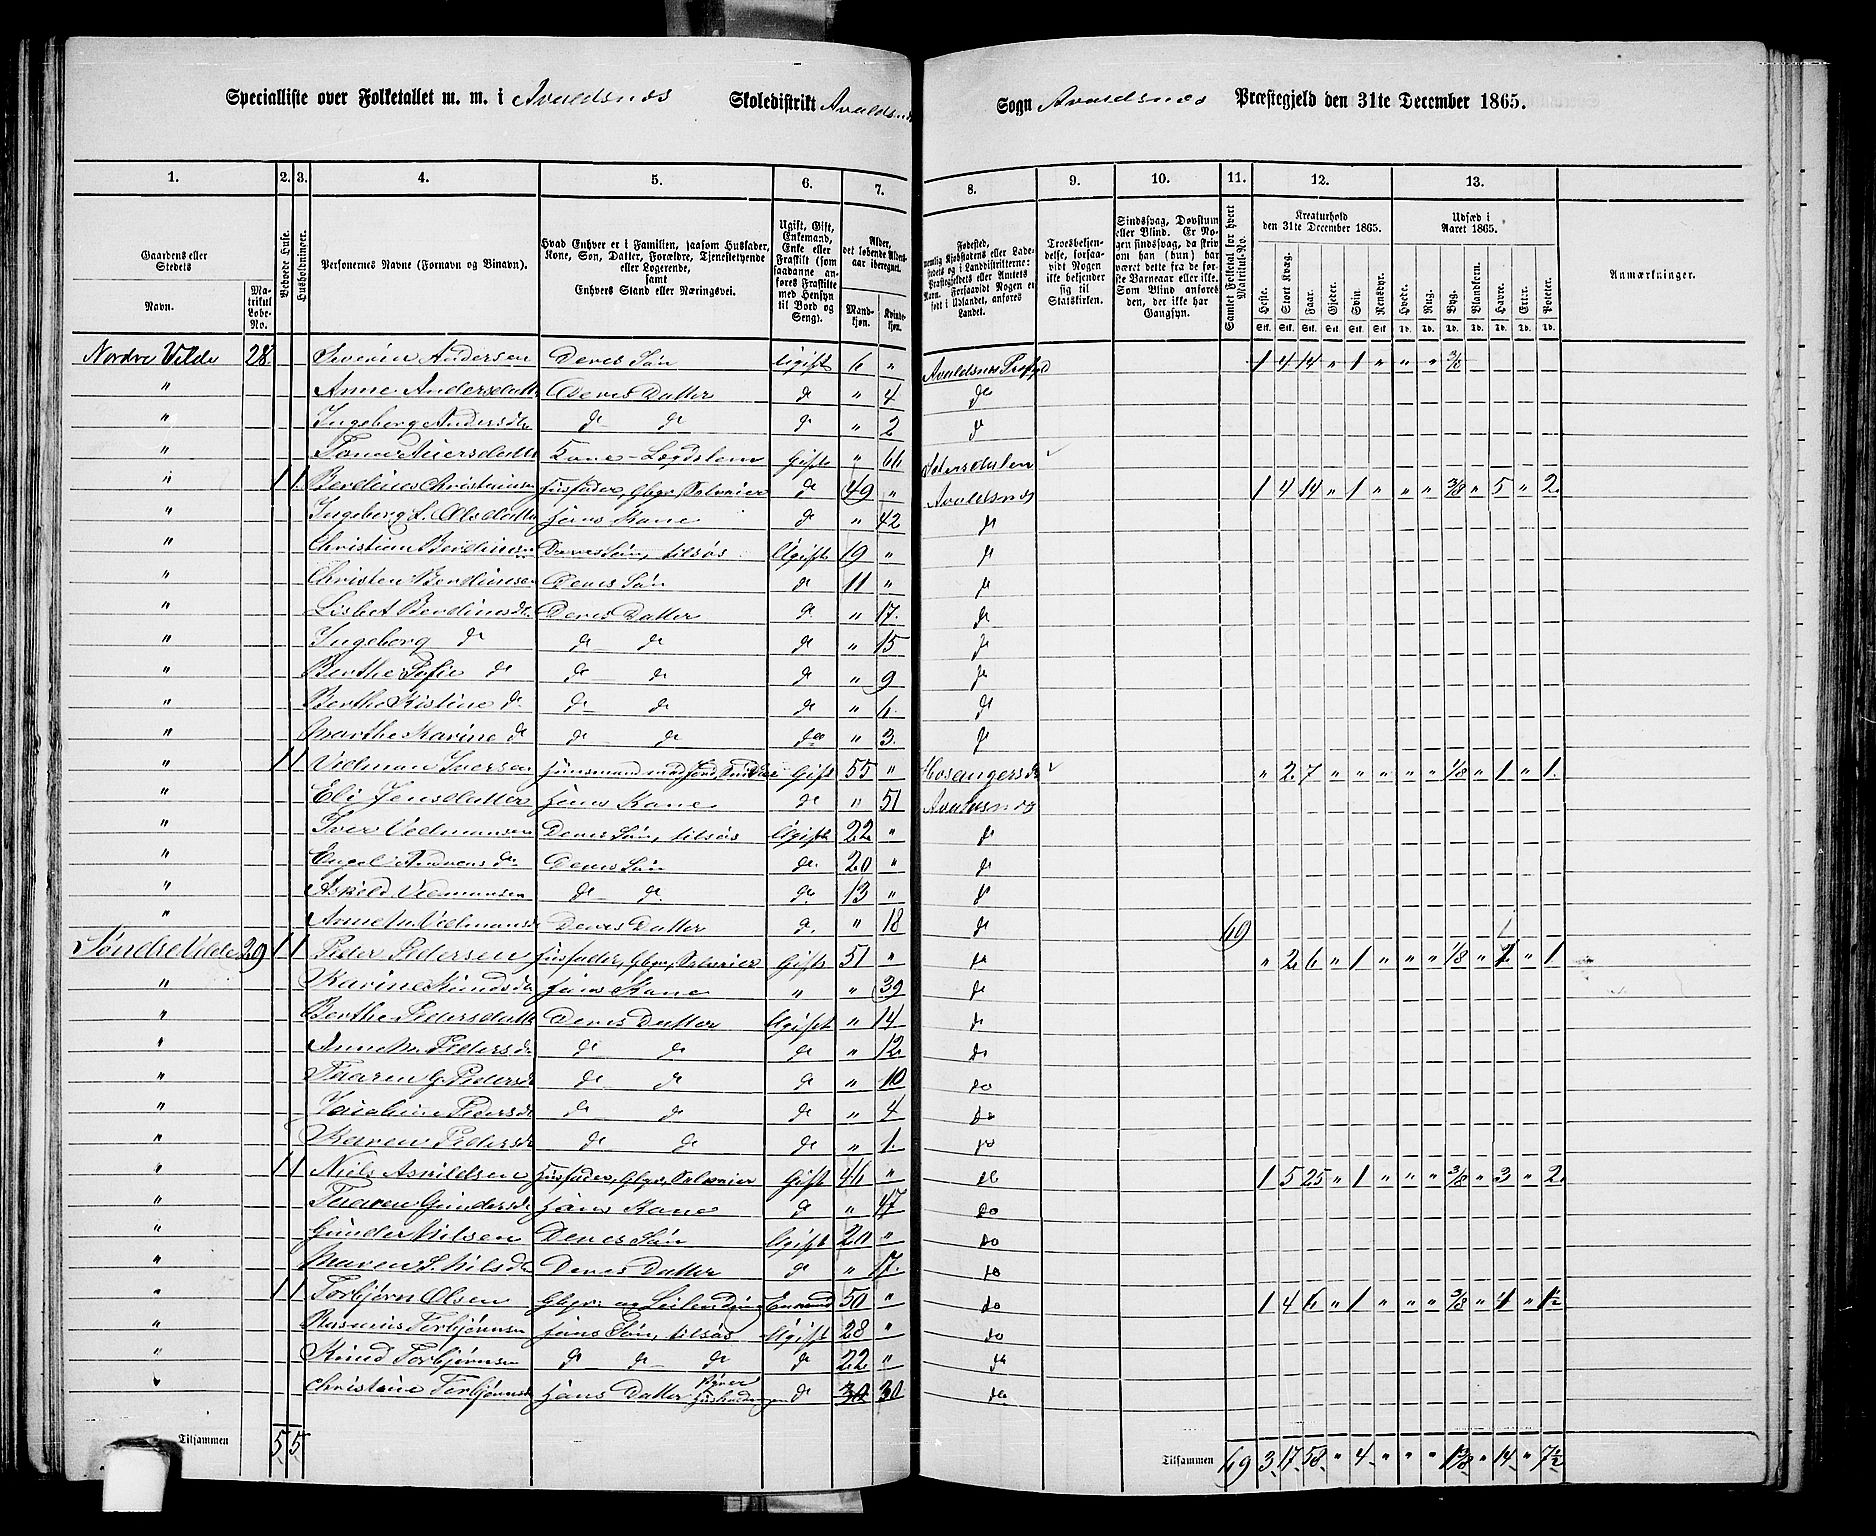 Specialliste over Folketallet m. m. i Avaldsnes Skoledistrikt Avaldsnes Sogn Avaldsnes Præstegjeld den 31te December 1865.
1. 2. 3. 4. 5. 6. 7. 8. 9. 10. 11. 12. 13.
Gaardens eller Stedets
Navn.
Matrikul Løbe-No.
Beboede Huse.
Husholdninger.
Personernes Navne (Fornavn og Binavn).
Hvad Enhver er i Familien, saasom Husfader, Kone, Søn, Datter, Forældre, Tjenestetyende eller Logerende, samt Enhvers Stand eller Næringsvei.
Ugift, Gift, Enkemand, Enke eller Fraskilt (som saadanne anføres Fraskilte med Hensyn til Bord og Seng).
Alder, det løbende Alders-aar iberegnet.
Mandkjøn. Kvindekjøn.
Fødested,
Troesbekjendelse, forsaavidt Nogen ikke bekjender sig til Statskirken.
Sindssvag, Døvstum eller Blind.
Samlet Folketal for hvert Matrikul-No.
Kreaturhold den 31te December 1865.
Heste. Stort Kvæg. Faar. Gjeder. Svin. Rensdyr.
Udsæd i Aaret 1865.
Hvede. Rug. Byg. Blandkorn. Havre. Erter. Poteter.
Anmærkninger.
Nordre Velde 28 Severin Andersen Deres Søn Ugift 6 " Avaldsnes Prgjd 1 4 14 " 1 " " "
" Anne Andersdatter Deres Datter do " 4 do
" Ingeborg Andersdtr do do do " 2 do
" Kone Gift " 66
" 1 1 Berdines Christensen Husfader, Gbgr, Selveier do 49 " Avaldsnes 1 4 14 " 1 " " " 3/8 " 5 " 2
" Ingeborg L. Olsdatter Hans Kone do " 42 do
" Christian Berdinesen Deres Søn, tilsøs Ugift 19 " do
" Christen Berdinesen Deres Søn do 11 " do
" Lisbet Berdinesdtr Deres Datter do " 17 do
" Ingeborg do do do do " 15 do
" Berthe Sofie do do do do " 9 do
" Berthe Kistine do do do do " 6 do
" Marthe Karine do do do do " 3 do
" 1 1 Velman Iversen Husmand med Jord, Gift 55 " " 2 7 " " " " " 1/8 " 1 " 1
" Eli Jensdatter Hans Kone do " 51 Avaldsnes
" Iver Velmansen Deres Søn, tilsøs Ugift 22 " do
" Engel Andreas do Deres Søn do 20 " do
" Askild Velmansen do do do 13 " do
" Anne M. Velmansdtr Deres Datter do " 18 do 69
Søndre Velde 29 1 1 Peder Pedersen Husfader, Gbgr, Selveier Gift 51 " do " 2 6 " 1 " " " 1/8 " " 1
" Karine Knudsdtr Hans Kone " " 39 do
" Berthe Pedersdatter Deres Datter Ugift " 14 do
" Anne M. Pedersdtr do do do " 12 do
" Taaren G. Pedersdtr do do do " 10 do
" Jacobine Pedersdtr do do do " 4 do
" Karen Pedersdtr do do do " 1 do
" 1 1 Niels Asvildsen Husfader, Gbgr, Selveier Gift 46 " do 1 5 25 " 1 " " " 3/8 " 3 " 2
" Taaren Gundersdtr Hans Kone do " 47 do
" Gunder Nilsen Deres Søn Ugift 20 " do
" Maren S. Nilsdtr Deres Datter do " 17 do
" 1 1 Torbjørn Olsen Gbgr. og Enkemd 50 " do 1 4 6 " 1 " " " 3/8 " 4 " 1½
" Rasmus Torbjørnsen Hans Søn, tilsøs Ugift 28 " do
" Knud Torbjørnsen do do do do 22 " do
" Christine Torbjørnsdtr Hans Datter Styrer Husholdningen do 30 30 do
Tilsammen 5 5 Tilsammen 69 3 17 58 " 4 " " " 1 3/8 " 14 " 7½